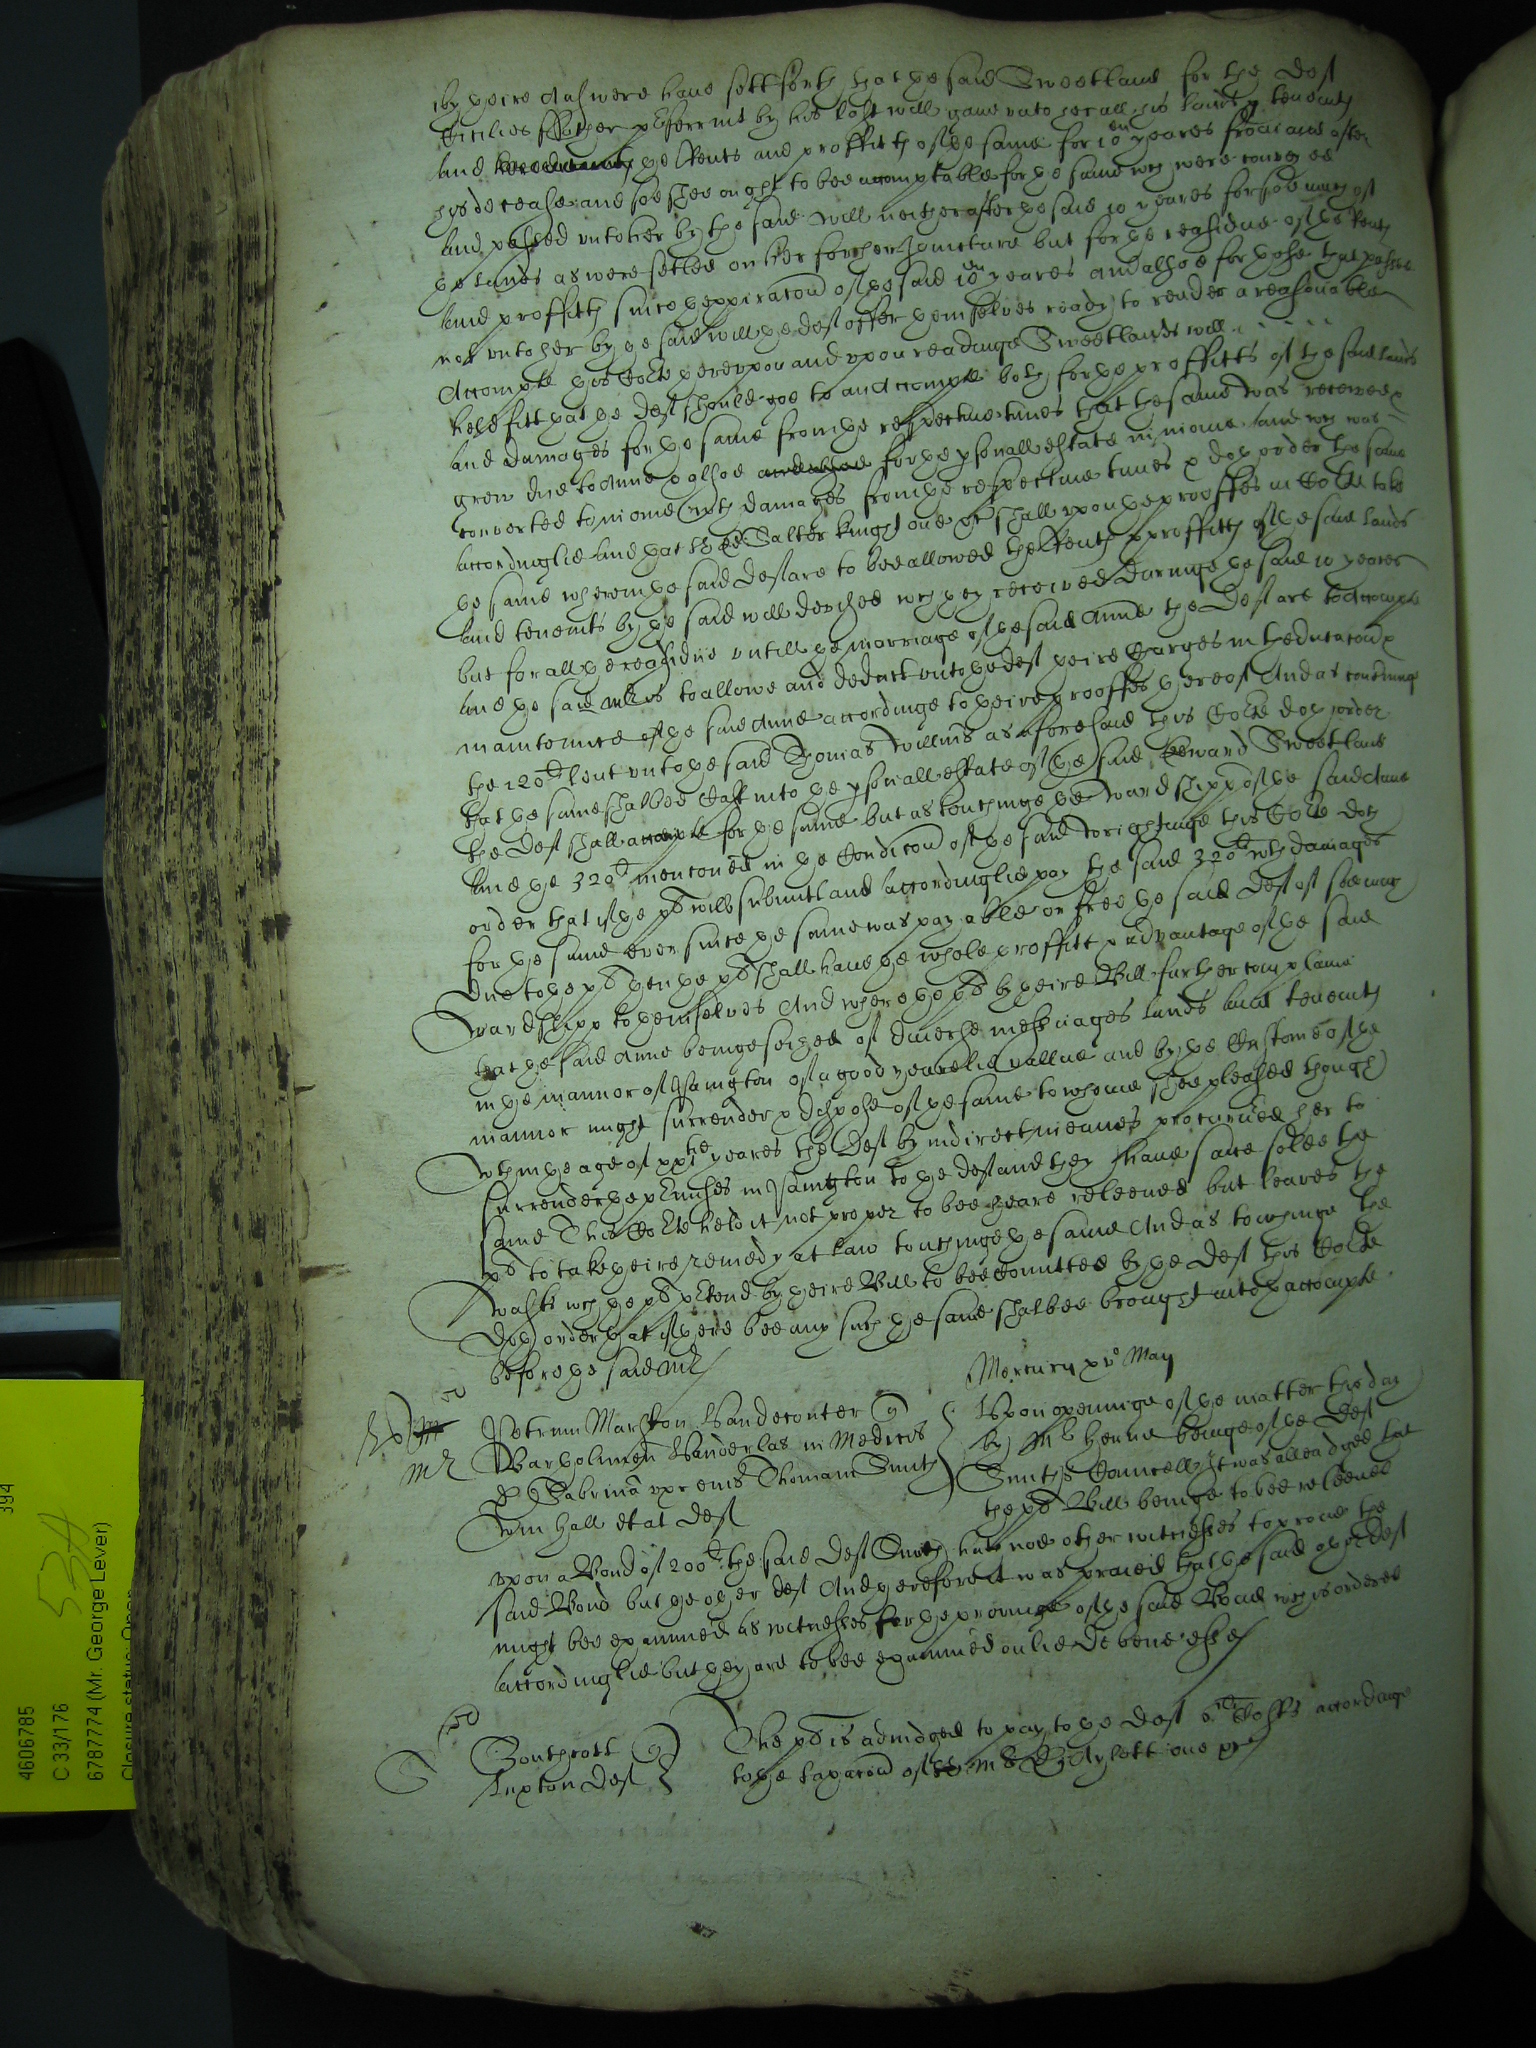 by theire Answere have sett forth that the said Sweetland for the Deft
Cicilies ffather prferrmt by his last will gave unto her all his lands & tenemts
and the Rents and proffitts of the same for 10en yeares from and after
his decease and soe shee ought to bee accomptable for the same wch were convey ed
and passed unto her by the said will neither after the said 10 yeares for soe much of
the lands as were setled on her for her Joincture but for the residue of the Rents
and proffitts since thexpiracon of the said 10en yeares and alsoe for those that passed
not unto her by the said will the deft offer themselves ready to render a reasonable
Accompte this Corte thereupon and upon readinge Sweetlands will
held fitt that the Deft should goe to an Accompte both for the proffitts of the said lands
and damages for the same from the respective times that the same was received &
grew due to Anne & alsoe and alsoe for the psonall estate in monie and wch was
converted to monie wth damages from the respective times & doth order the same
accordinglie and that Sr Ed Salter knight one &c shall upon the prooffes in Corte take
the same wherein the said Deft are to bee allowed the Rents & proffitts of the said lands
and tenemts by the said will devised wch they received duringe the said 10 yeares
but for all the residue untill the marriage of the said Anne the Deft are to Accompte
and the said Mr is to allowe and deduct unto the deft theire Charges in the educacon &
maintennce of the said Anne accordinge to theire prooffes thereof And as touchinge
the 120li lent unto the said Thomas Willms as aforesaid this Corte doth order
that the same shalbee Cast into the psonall estate of the said Edward Sweetland
the Deft shall accompte for the same but as touchinge the wardshipp of the said Anne
and the 320li menconed in the Condicon of the said wrightinge this Corte doth
order that if the plt will submitt and accordinglie pay the said 320li wth damages
for the same ever since the same was payable or free the said Deft of soe much
due to the plt then the plt shall have the whole proffitt & advantage of the said
wardshipp to themselves And where the plt by theire Bill further complaine
that the said Anne beinge seized of diverse messuages lands and tenemts
in the mannor of Isington of a good yearelie vallue and by the Custome of the
mannor might surrender & dispose of the same to whome shee pleased though
within the age of xxitie yeares the Deft by indirect meanes procured her to
surrender the prmisses in Isington to the deft and they have since solde the
same This Corte held it not proper to bee heare releeved but leaves the
plt to take theire remedy at law touchinge the same And as touchinge the
wasts wch the plt prtend by theire Bill to bee comitted by the Deft this Corte
doth order that if there bee any such the same shalbee brought into thaccompte
before the said Mr
Mercurij xvo May
Petrum Marston Vandeconter qu
Bartholomen Vanderlas in Medicis
& Sabrina uxr eius Thomam Smith
Wm Hall et al Deft
Upon openinge of the matter this day
by Mr Henne beinge of the Deft
Smiths Councell It was alleadged that
the plt Bill beinge to bee releeved
upon a Bond of 200li the said Deft Smith hath noe other witnesses to prove the
said Bond but the other deft And therefore it was praied that the said other deft
might bee examined as witnesses for the provinge of the said Bond wch is ordered
accordinglie but they are to bee examined onlie de bene esse
Southcott qu
Luxton Deft
The plt is adiudged to pay to the Deft Costs accordinge
to the taxacon of Mr Dr Aylett one &c
394
53A
4606785
C 33/176
6787774 (Mr. George Lever)
Closure status: Open